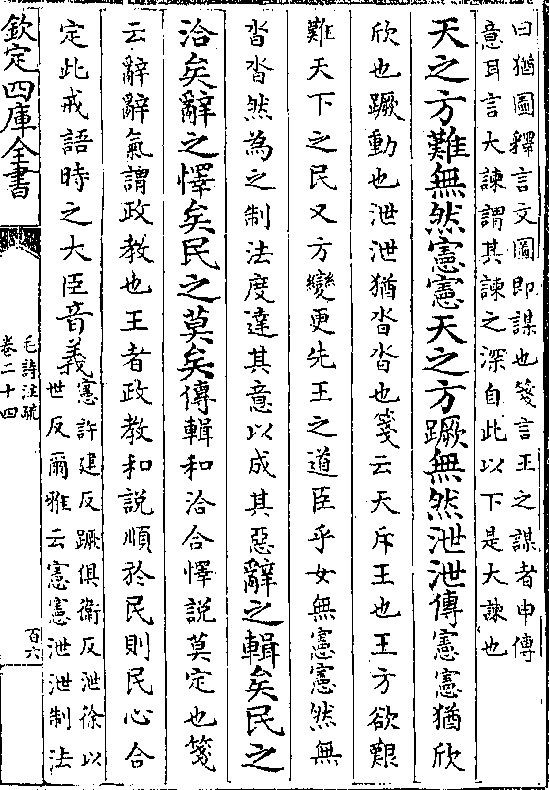 曰猶圖釋言文圖即謀也箋言王之謀者申傳
意耳言大諫謂其諫之深自此以下是大諫也
天之方難無然憲憲天之方蹶無然泄泄傳憲憲猶欣
欣也蹶動也泄泄猶沓沓也箋云天斥王也王方欲艱
難天下之民又方變更先王之道臣乎女無憲憲然無
沓沓然為之制法度達其意以成其惡辭之輯矣民之
洽矣辭之懌矣民之莫矣傳輯和洽合懌說莫定也箋
云辭辭氣謂政教也王者政教和說順於民則民心合
定此戒語時之大臣音義憲許建反蹶俱衛反泄徐以
世反爾雅云憲憲泄泄制法
欽定四庫全書
毛詩注疏
卷二十四
百六